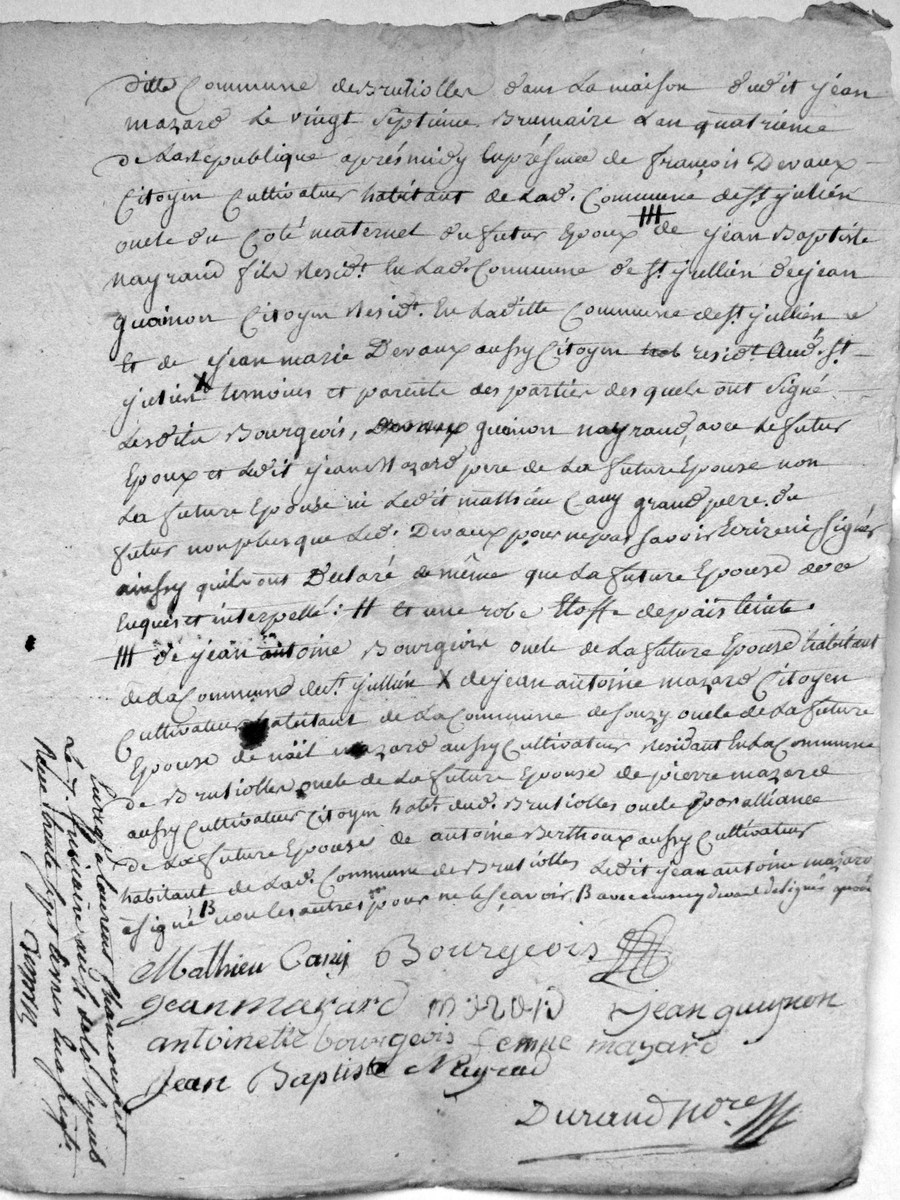 ditte Commune de Brussiolles dans La maison dudit jean
mazard Le vingt Septieme Brumaire L'an quatrieme
de La Republique aprés midy En présence de françois Devaux
Citoyen Cultivateur habitant de Lad. Commune de St jullien
oncle du Coté maternel du futur Epoux ## de jean Baptiste
nayrand fils Resid.t En Lad. Commune de St jullien de jean
guainon Citoyen Resid.t En Laditte Commune de St jullien
Et de jean marie Devaux aussy Citoyen hab resid.t Aud. St
julien X temoins et parents des parties des quels ont signé
Lesdits Bourgeois, Devaux guainon nayrand, avec Le futur
Epoux et Ledit jean Mazard pere de La future Epouse non
La future Epouse ni Ledit mathieu Cany grand pere du
futur non plus que Led. Devaux pour ne pas savoir Ecrire ni signer
ainssy quils ont Déclaré de même que La future Epouse de ce
Enquis et interpellé: # Et une robe Etoffe de païs teinte.
## de jean antoine Bourgeois oncle de La future Epouse habitant
de La Commune de St jullien X de jean antoine mazard Citoyen
Cultivateur habitant de La Commune de Souzy oncle de La future
Epouse de nöil mazard aussy Cultivateur residant En La Commune
de Brussiolles oncle de La future Epouse de pierre mazard
aussy Cultivateur Citoyen hab.t dud. Brussiolles oncle par alliance
de La future Epouse de antoine Berthoux aussy Cultivateur
habitant de Lad. Commune de Brussiolles Ledit jean antoine mazard
a signé B non les autres pour ne le sçavoir, B avec
Mathieu Cany Bourgeois
jean mazard mazard jean guynon
antoinette bourgeois femme mazard
Jean Baptiste Nayrad
Durand No.re
Enregt a laurent
Le 7. frimaire an 4.
Reçu trente sept livres